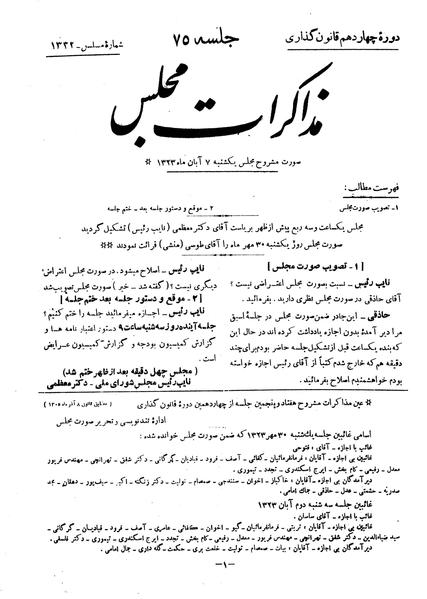 دورهٔ چهاردهم قانون گذاری
جلسه ۷۵
شمارهٔ مسلسل - ۱۳۲۲
مذاکرات مجلس
صورت مشروح مجلس یکشنبه ۷ آبان ماه ۱۳۲۳ *
فهرست مطالب:
۱ - تصویب صورت مجلس
۲ - موقع و دستور جلسه بعد - ختم جلسه
مجلس یکساعت و سه ربع پیش از ظهر بریاست آقای دکتر معظمی (نایب رئیس) تشکیل گردید
صورت مجلس روز یکشنبه ۳۰ مهر ماه را آقای طوسی (منشی) قرائت نمودند **
[ ۱ - تصویب صورت مجلس ]
نایب رئیس - نسبت بصورت مجلس اعتراضی نیست؟
آقای حاذقی در صورت مجلس نظری دارید. بفرمائید.
حاذقی - این جا در ضمن صورت مجلس در جلسهٔ اسبق
مرا دیر آمدهٔ بدون اجازه یادداشت کرده اند در حال این
که بنده یکساعت قبل از تشکیل جلسه حاضر بودم برای چند
دقیقه هم که خارج شدم کتباً از آقای رئیس اجازه خواسته
بودم خواهشمندم اصلاح بفرمائید.
نایب رئیس - اصلاح میشود. در صورت مجلس اعتراض
دیگری نیست؟ (گفته شد - خیر) صورت مجلس تصویب شد
[ ۲ - موقع و دستور جلسه بعد ختم جلسه ]
نایب رئیس - اجازه میفرمائید جلسه را ختم کنیم؟
جلسه آینده روز سه شنبه ساعت ۹ دستور اعتبار نامه ها و
گزارش کمیسیون بودجه و گزارش کمیسیون عرایض
است.
(مجلس چهل دقیقه بعد از ظهر ختم شد)
نایب رئیس مجلس شورای ملی - دکتر معظمی
* عین مذاکرات مشروح هفتاد و پنجمین جلسه از چهاردهمین دورهٔ قانون گذاری
(مطابق قانون ۸ آذر ماه ۱۳۰۵)
ادارهٔ تندنویسی و تحریر صورت مجلس
اسامی غائبین جلسه یکشنبه ۳۰ مهر ۱۳۲۳ که ضمن صورت مجلس خوانده شده:
غائب با اجازه - آقای: فتوحی
غائبین بی اجازه - آقایان: فرمانفرمائیان - کفائی - آصف - فرود - قبادیان - گرگانی - دکتر شفق - تهرانچی - مهندس فریور
معدل - رفیعی - کام بخش - ایرج اسکندری - تجدد - تیموری.
دیر آمدگان بی اجازه - آقایان: خاکباز - اخوان - سنندجی - صمصام - تولیت - دکتر زنگنه - اکبر - سیف پور - دهقان - مجد
صدریه - حشمتی - عدل - حاذقی - جمال امامی.
غائبین جلسه سه شنبه دوم آبان ۱۳۲۳
غائب با اجازه - آقای: ساسان
غائبین بی اجازه - آقایان: تربتی - فرمانفرمائیان - گیو - اخوان - کفائی - عامری - آصف - فرود - قبادیان - گرگانی -
سید ضیاءالدین - دکتر شفق - تهرانچی - مهندس فریور - رفیعی - کام بخش - تجدد - ایرج اسکندری - تیموری - دکتر فلسفی.
دیر آمدگان بی اجازه - آقایان: بیات - صمصام - تولیت - خلعت بری - حکمت - گله داری - جمال امامی.
-۱-